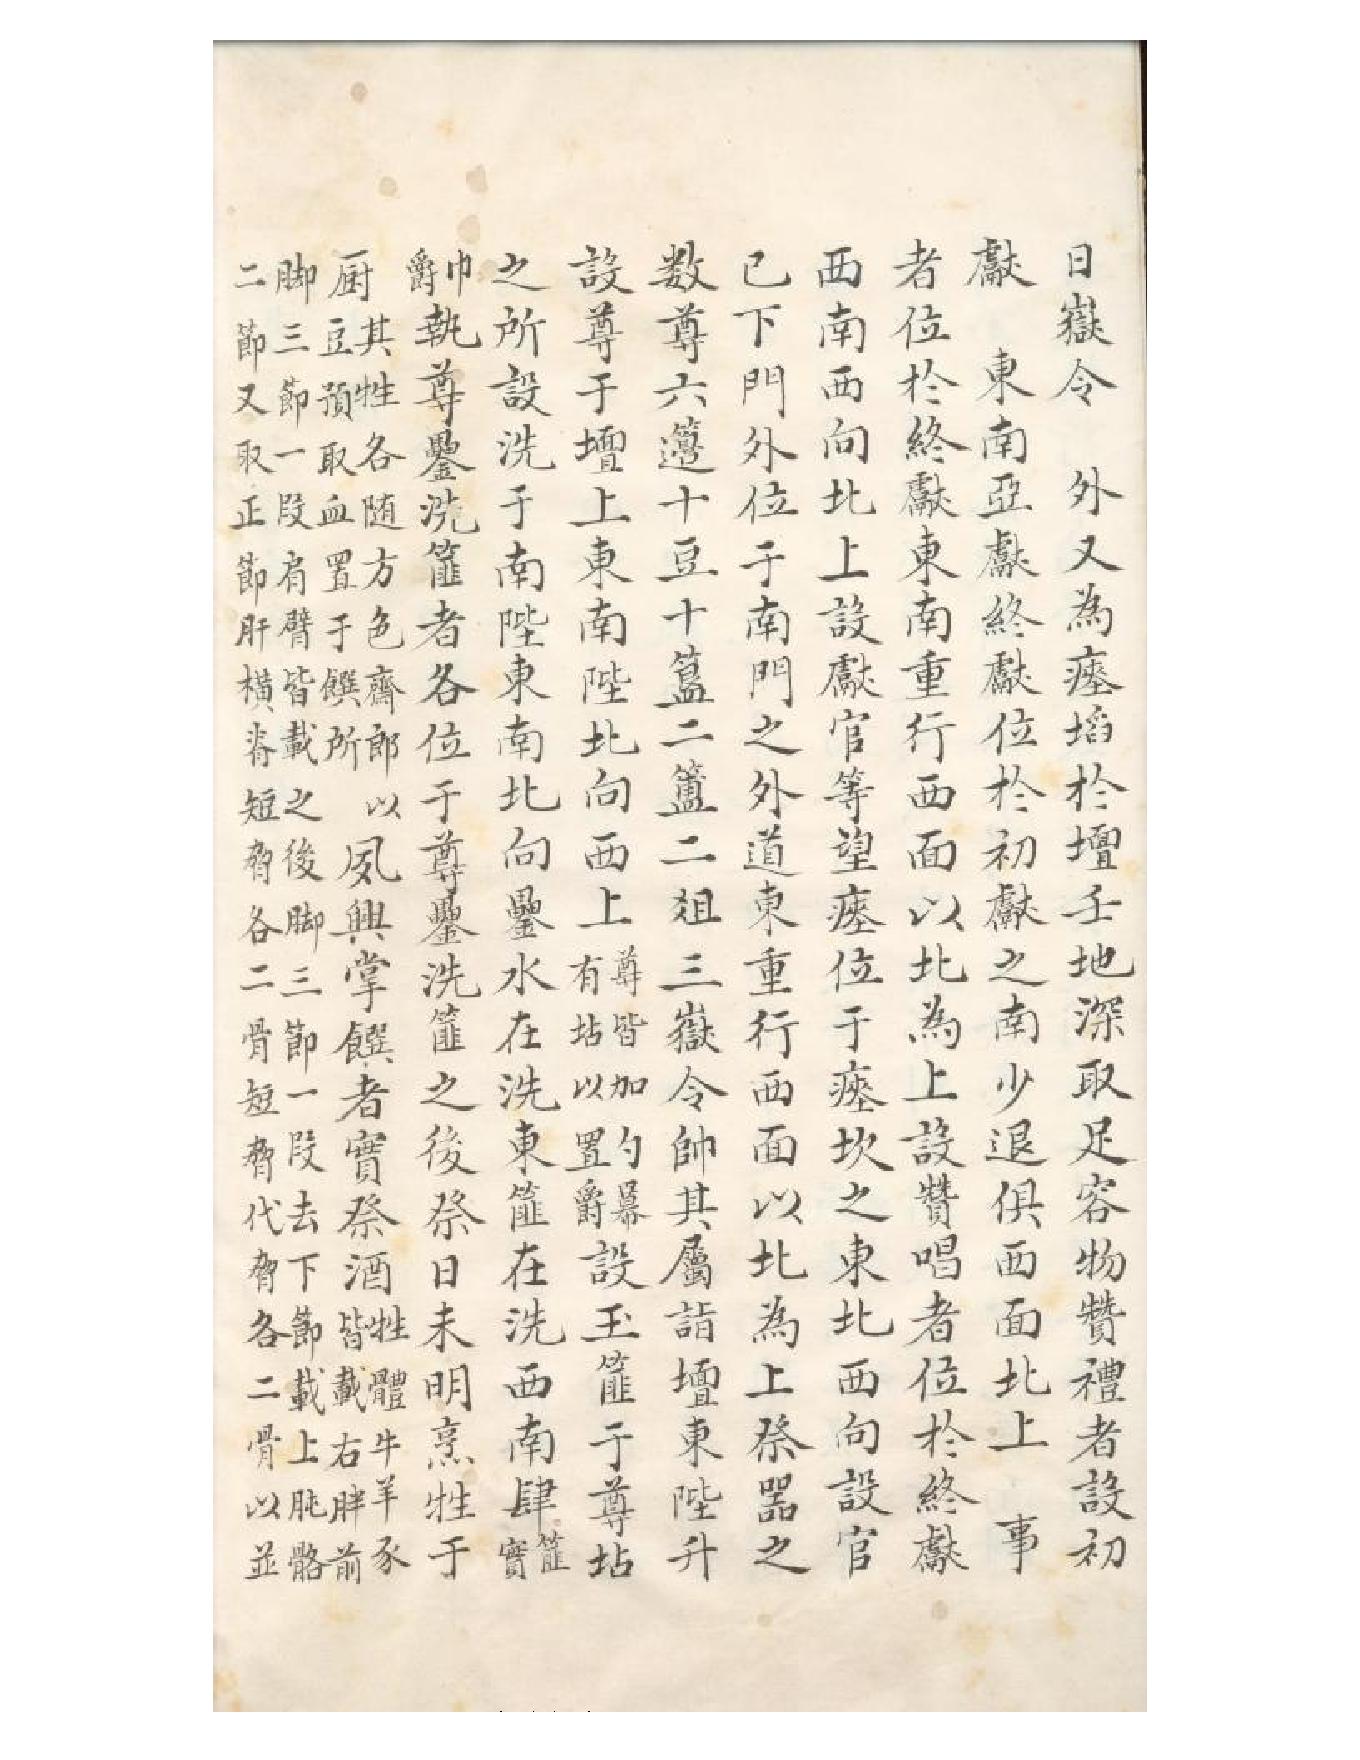 日嶽令　外又為瘞埳於壇壬地深取足容物贊禮者設初
獻　東南亞獻終獻位於初獻之南少退俱西面北上　事
者位於終獻東南重行西面以北為上設贊唱者位於終獻
西南西向北上設獻官等望瘞位于瘞坎之東北西向設官
已下門外位于南門之外道東重行西面以北為上祭器之
数尊六籩十豆十簋二簠二俎三嶽令帥其屬詣壇東陛升
設尊于壇上東南陛北向西上尊皆加勺幂有坫以置爵設玉篚于尊坫
之所設洗于南陛東南北向罍水在洗東篚在洗西南肆篚實
巾爵執尊罍洗篚者各位于尊罍洗篚之後祭日未明烹牲于
厨其牲各随方色齊郎以豆預取血置于饌所夙興掌饌者實祭酒牲體牛羊豕皆載右胖前
脚三節一段肩臂皆載之後脚三節一段去下節載上肫骼
二節又取正節肝橫脊短脅各二骨短脅代脅各二骨以並